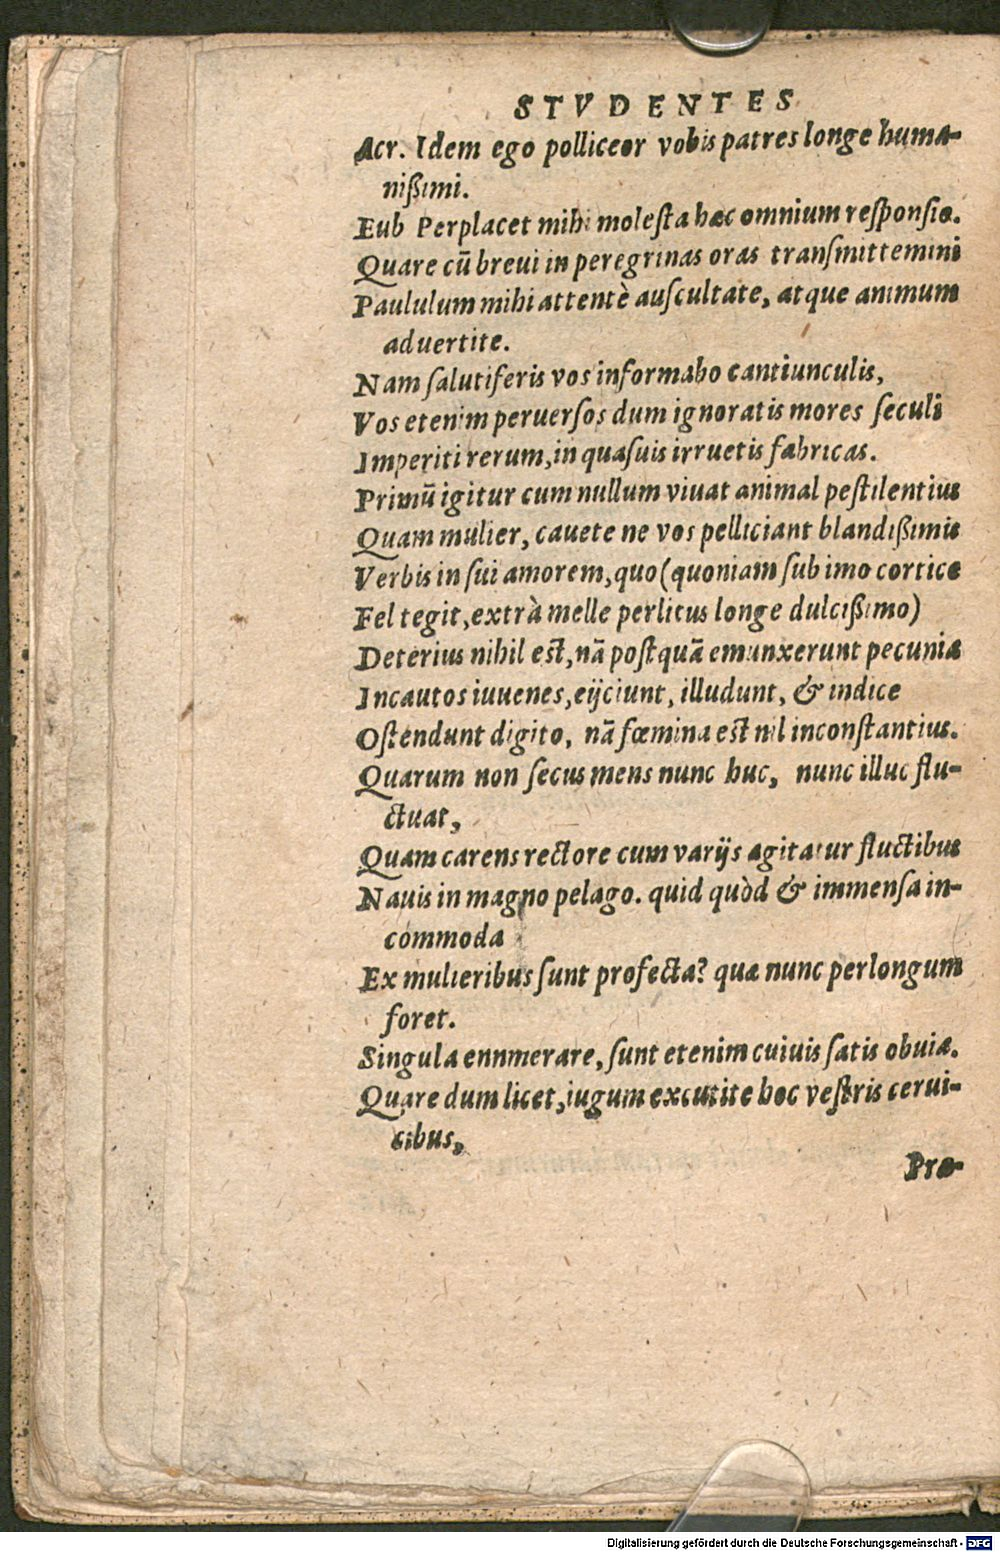 STVDENTES
Acr. Idem ego polliceor vobis patres longe huma-
nißimi.
Eub Perplacet mihi molesta hæc omnium responsio.
Quare cū breui in peregrinas oras transmittemini
Paululum mihi attentè auscultate, atque animum
aduertite.
Nam salutiferis vos informabo cantiunculis,
Vos etenim peruersos dum ignoratis mores seculi
Imperiti rerum, in quasuis irruetis fabricas.
Primū igitur cum nullum viuat animal pestilentius
Quam mulier, cauete ne vos pelliciant blandißimis
Verbis in sui amorem, quo (quoniam sub imo cortice
Fel tegit, extrà melle perlitus longe dulcißimo)
Deterius nihil est, nā postquā emunxerunt pecuniæ
Incautos iuuenes, eijciunt, illudunt, & indice
Ostendunt digito, nā fœmina est nil inconstantius.
Quarum non secus mens nunc huc, nunc illuc flu-
ctuat,
Quam carens rectore cum varijs agitatur fluctibus
Nauis in magno pelago. quid quòd & immensa in-
commoda
Ex mulieribus sunt profecta? quæ nunc perlongum
foret.
Singula ennmerare, sunt etenim cuiuis satis obuiæ.
Quare dum licet, iugum excutite hoc vestris cerui-
cibus,
Præ-
Digitalisierung gefördert durch die Deutsche Forschungsgemeinschaft - DFG